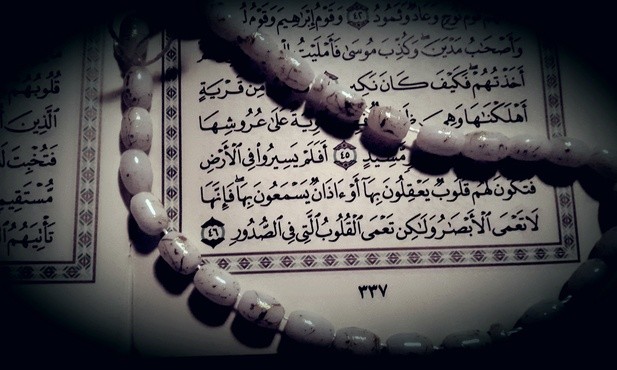 نُوحٍ وَعَادٌ وَثَمُودُ ٤٢ وَقَوْمُ إِبْرَٰهِيمَ وَقَوْمُ
وَأَصْحَٰبُ مَدْيَنَۖ وَكُذِّبَ مُوسَىٰ فَأَمْلَيْتُ
أَخَذْتُهُمْۖ فَكَيْفَ كَانَ مِّن قَرْيَةٍ
أَهْلَكْنَٰهَا وَهِىَ عَلَىٰ عُرُوشِهَا
مَّشِيدٍ ٤٥ أَفَلَمْ يَسِيرُوا۟ فِى ٱلْأَرْضِ
فَتَكُونَ لَهُمْ قُلُوبٌ يَعْقِلُونَ بِهَآ أَوْ ءَاذَانٌ يَسْمَعُونَ بِهَاۖ فَإِنَّهَا
لَا تَعْمَى ٱلْأَبْصَٰرُ وَلَٰكِن تَعْمَى ٱلْقُلُوبُ ٱلَّتِى فِى ٱلصُّدُورِ ٤٦
٣٣٧
قُلُوبُهُمْ
ٱلَّذِينَ
فَتُخْبِتَ
مُّسْتَقِيمٍ
تَأْتِيَهُمُ